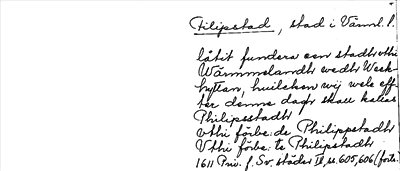 Filipstad, stad i Värml. l.
låtit fundera een stadh uthi
Wärmmelandh wedh Wesk-
hyttan, huilcken wij wele eff-
ter denna dagh skall kallas
Philipsstadh
vthi förbe: de Philippstadh
Vthi förbe: te Philipstadh
1611 Priv. f. Sv. städer II, s. 605, 606 (forts.